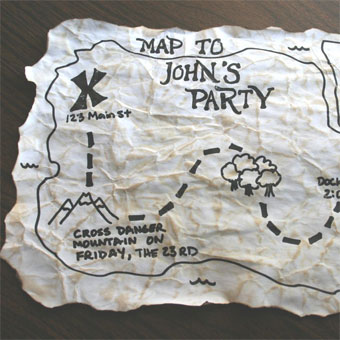 MAP TO
JOHN'S
PARTY
X
123 Main St
CROSS DANGER
MOUNTAIN ON
FRIDAY, THE 23RD